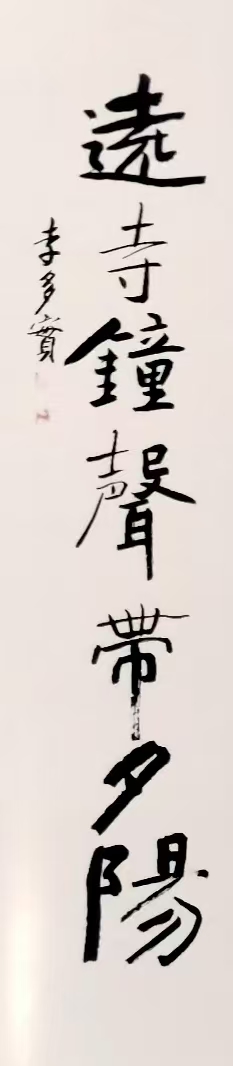 遠寺鐘聲帶夕陽
李多寶